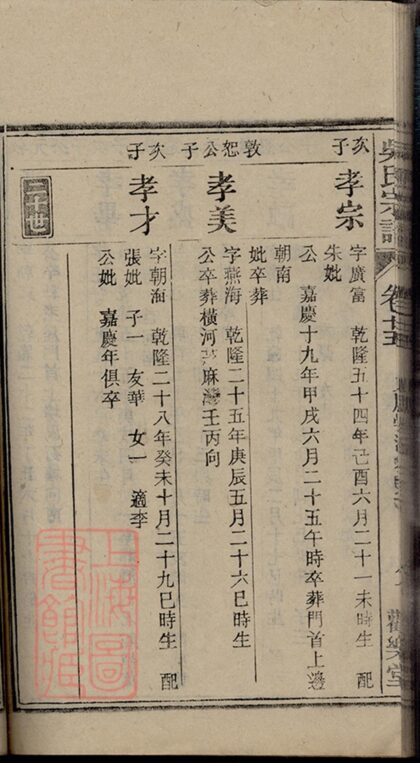 吳氏宗譜
卷
歡樂堂
次子
孝宗
字廣富 乾隆五十四年己酉六月二十一未時生 配
朱妣
公 嘉慶十九年甲戌六月二十五午時卒葬門首上邊
朝南
妣卒葬
敦恕公子
孝美
字燕海 乾隆二十五年庚辰五月二十六巳時生
公卒葬橫河 麻灣壬丙向
次子
孝才
字朝海 乾隆二十八年癸未十月二十九巳時生 配
張妣 子一 友華 女一 適李
公妣 嘉慶年俱卒
二十世
上海圖書館藏